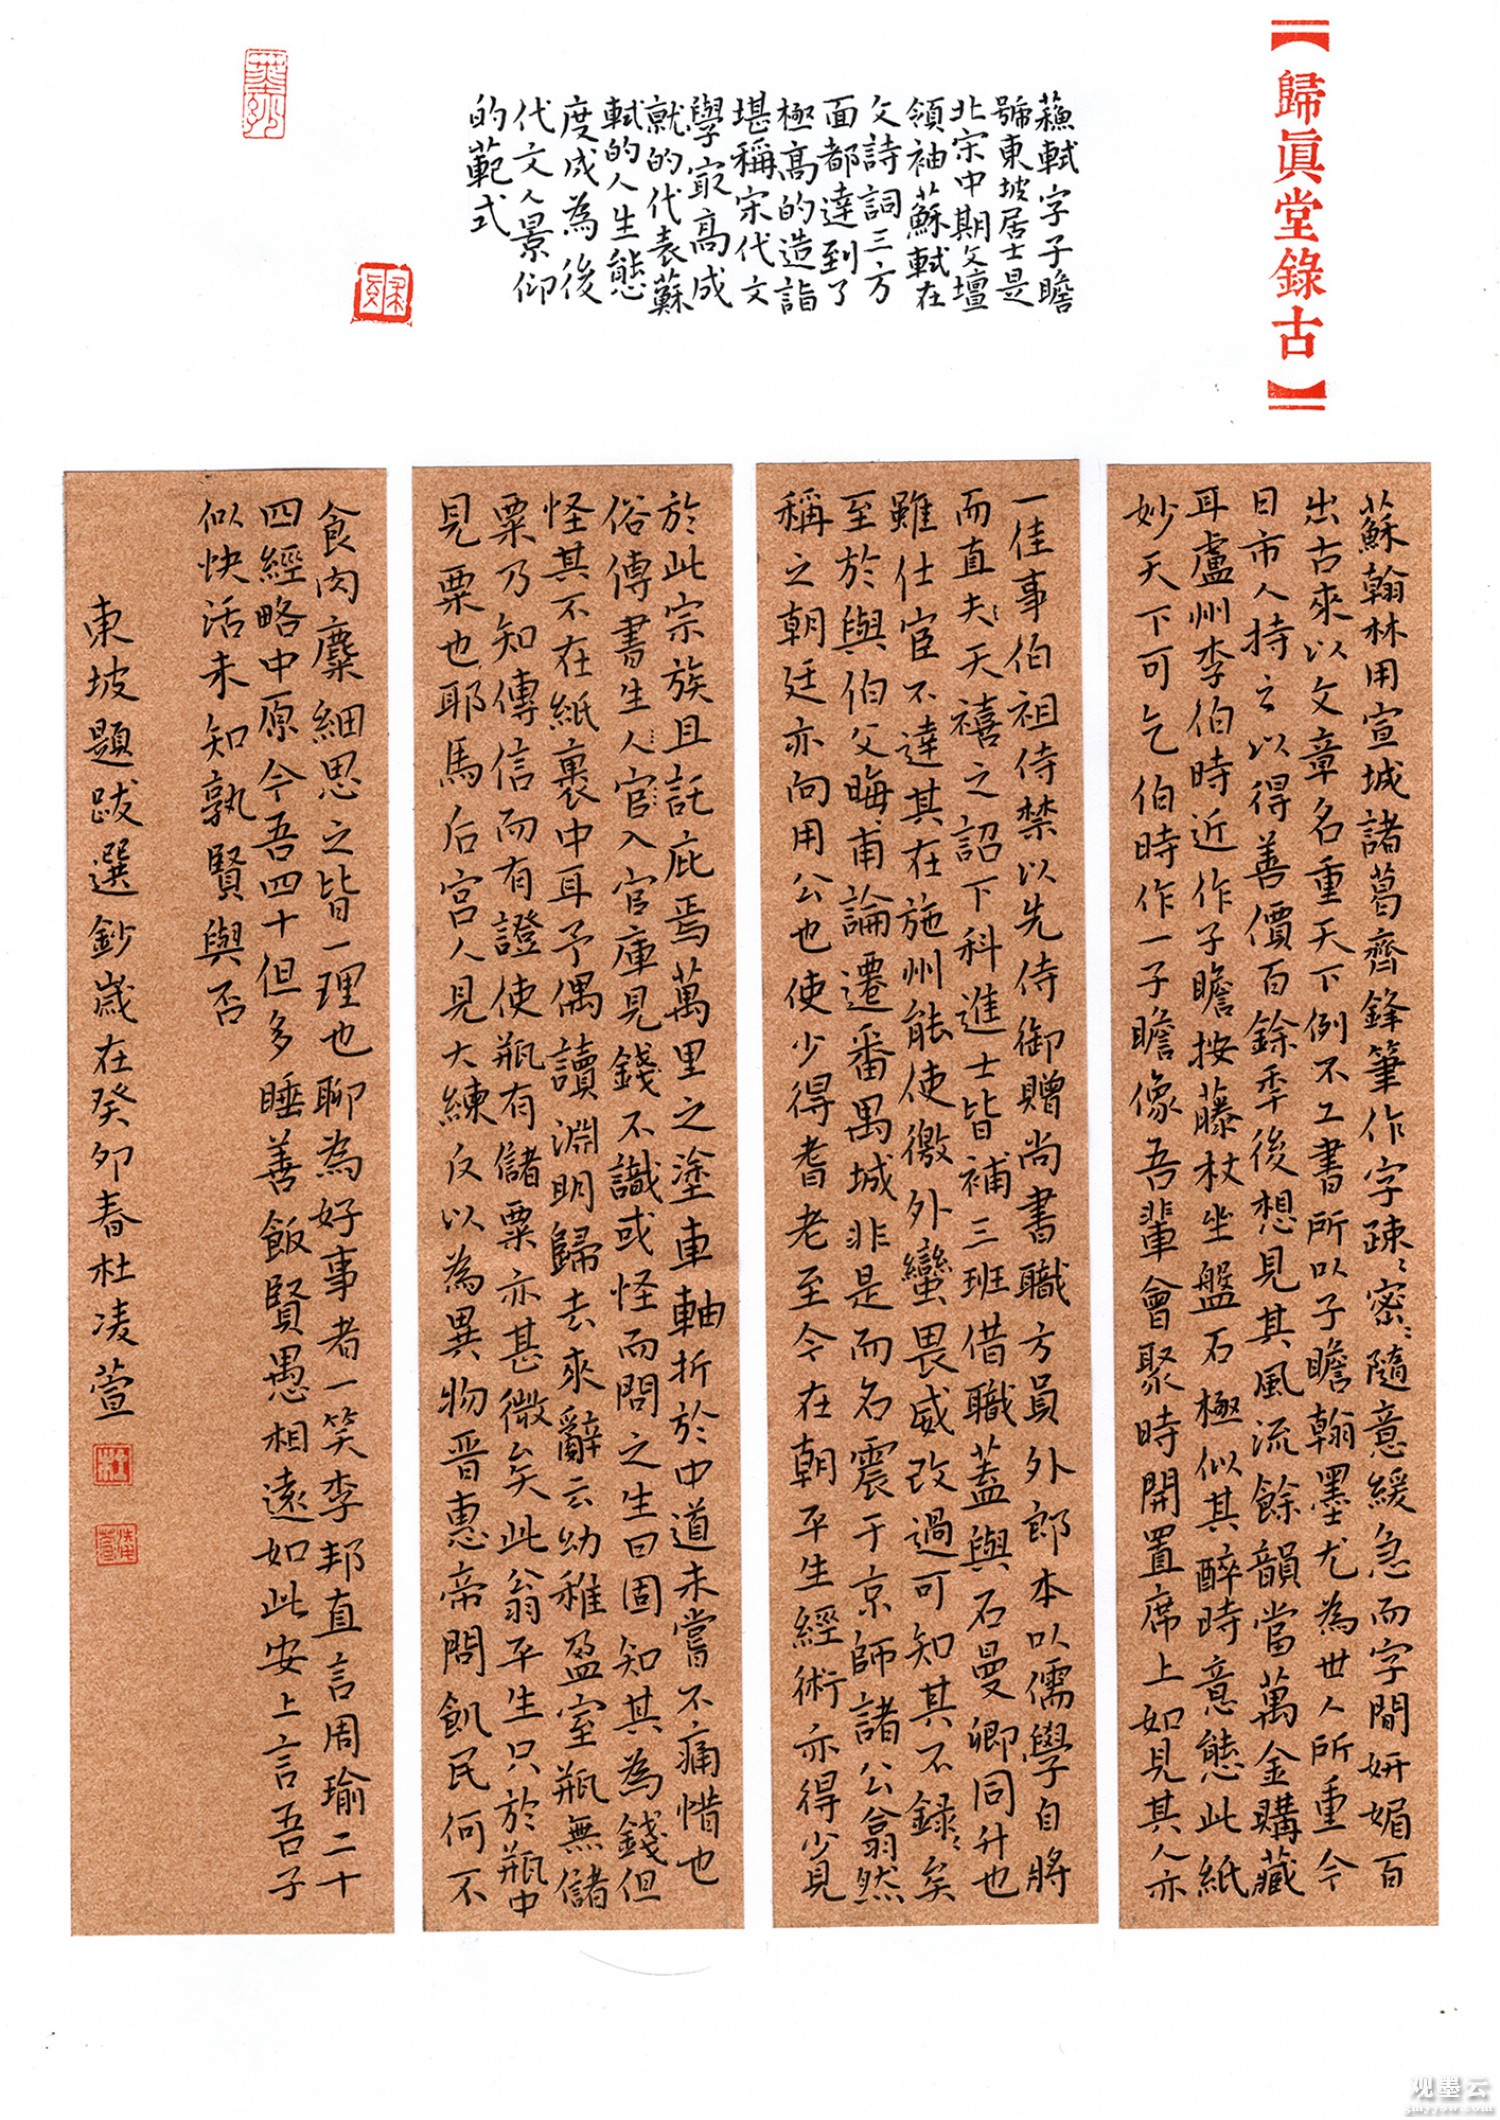 歸眞堂錄古
蘓軾字子瞻
號東坡居士是
北宋中期文壇
領袖蘇軾在
文詩詞三方
面都達到了
極高的造詣
堪稱宋代文
學寂高成
就的代表蘇
軾的人生態
度成為後
代文人景仰
的範式
蘇翰林用宣城諸葛齊鋒筆作字疎〻密〻隨意緩急而字間妍媚百
出古來以文章名重天下例不工書所以子瞻翰墨尤為世人所重今
日市人持之以得善價百餘季後想見其風流餘韻當萬金購藏
耳盧州李伯時近作子瞻按藤杖坐盤石極似其醉時意態此紙
妙天下可乞伯時作一子瞻像吾輩會聚時開置席上如見其人亦
一佳事伯祖侍禁以先侍御贈尚書職方員外郎本以儒學自將
而直夫天禧之詔下科進士皆補三班借職蓋與石曼卿同升也
雖仕宦不達其在施州能使徼外蠻畏威改過可知其不錄〻矣
至於與伯父晦甫論遷番禺城非是而名震于京師諸公翕然
稱之朝廷亦向用公也使少得耆老至今在朝平生經術亦得少見
於此宗族且託庇焉萬里之塗車軸折於中道未嘗不痛惜也
俗傳書生人官入官庫見錢不識或怪而問之生曰固知其為錢但
怪其不在紙裹中耳予偶讀淵明歸去來辭云幼稚盈室瓶無儲
粟乃知傳信而有證使瓶有儲粟亦甚微矣此翁平生只於瓶中
見粟也耶馬后宮人見大練反以為異物晋惠帝問飢民何不
食肉糜細思之皆一理也聊為好事者一笑李邦直言周瑜二十
四經略中原今吾四十但多睡善飯賢愚相遠如此安上言吾子
似快活未知孰賢與否
東坡題跋選鈔歲在癸卯春杜凌萱
观墨云
gmyyow.com